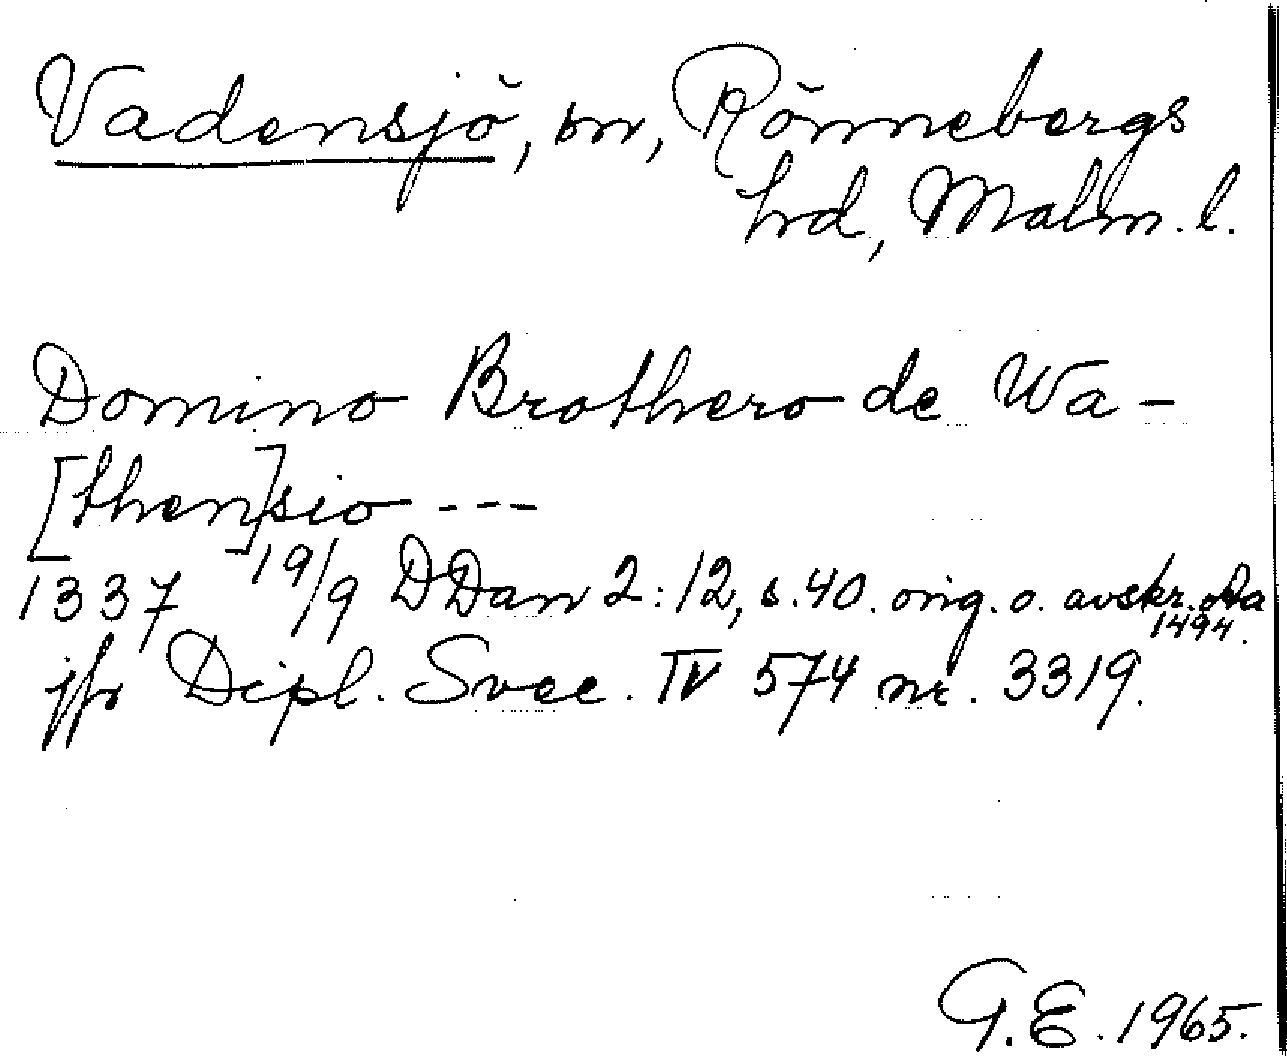 Vadensjö, sn, Rönnebergs
hd, Malm. l.
Domino Brothero de Wa-
[then]sio ---
1337 19/9 DDan 2:12, s. 40. orig. o. avskr. Ra
1494.
jfr Dipl. Svec. IV 574 nr. 3319.
G.E. 1965.